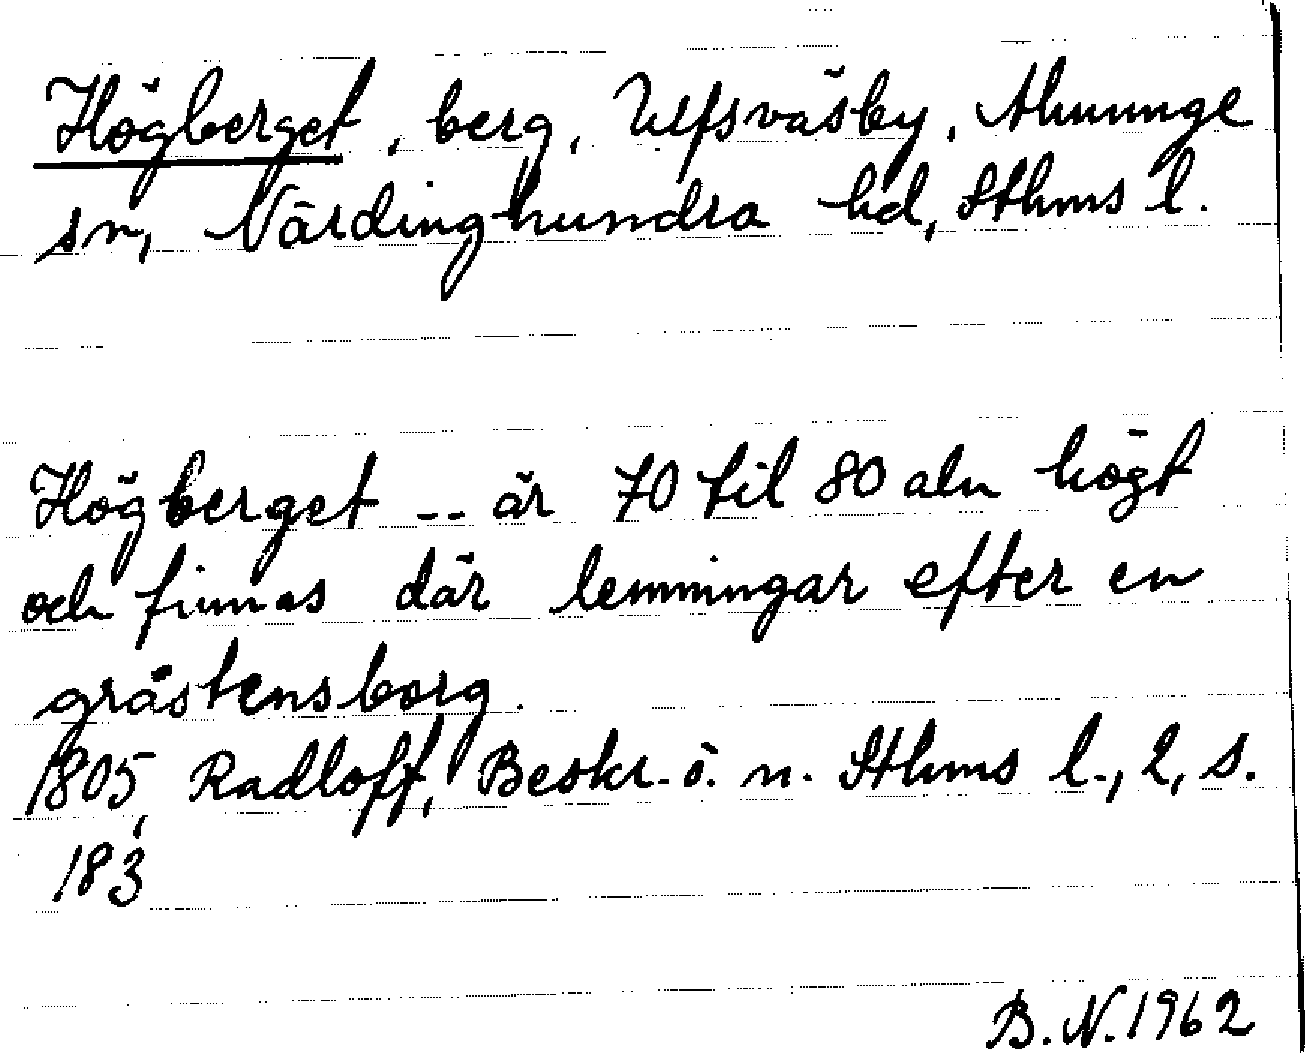 Högberget, berg, Ulfsväsby, Almunge
sn, Närdinghundra hd, Sthms l.
Högberget -- är 70 til 80 aln högt
och finnas där lemningar efter en
gråstensborg.
1805, Radloff, Beskr. ö. n. Sthms l., 2, s.
183
B.N. 1962